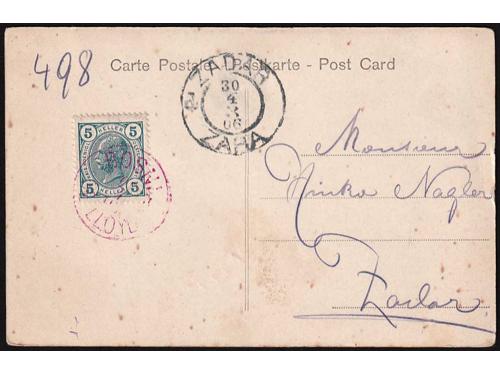 498
Carte Postale - Postkarte - Post Card
ZADAR
30
06
ZARA
5 HELLER 5
5 HELLER 5
LLOYD
Monsieur
Ninko Nagler
Zadar